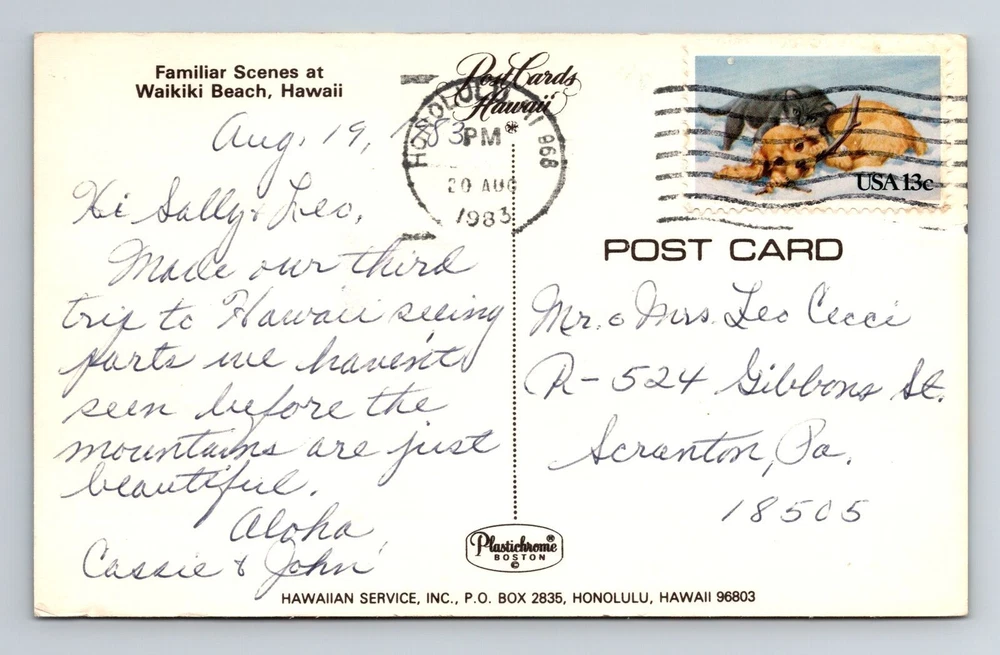 Familiar Scenes at
Waikiki Beach, Hawaii
Aug. 19, '83
Hi Sally & Leo,
Made our third
trip to Hawaii seeing
parts we haven't
seen before the
mountains are just
beautiful.
Aloha,
Cassie & John
Post Cards
Hawaii
HONOLULU HI 968
PM
20 AUG
1983
USA 13c
POST CARD
Mr. & Mrs. Leo Cecci
R-524 Gibbons St.
Scranton, Pa.
18505
Plastichrome®
BOSTON
©
HAWAIIAN SERVICE, INC., P.O. BOX 2835, HONOLULU, HAWAII 96803